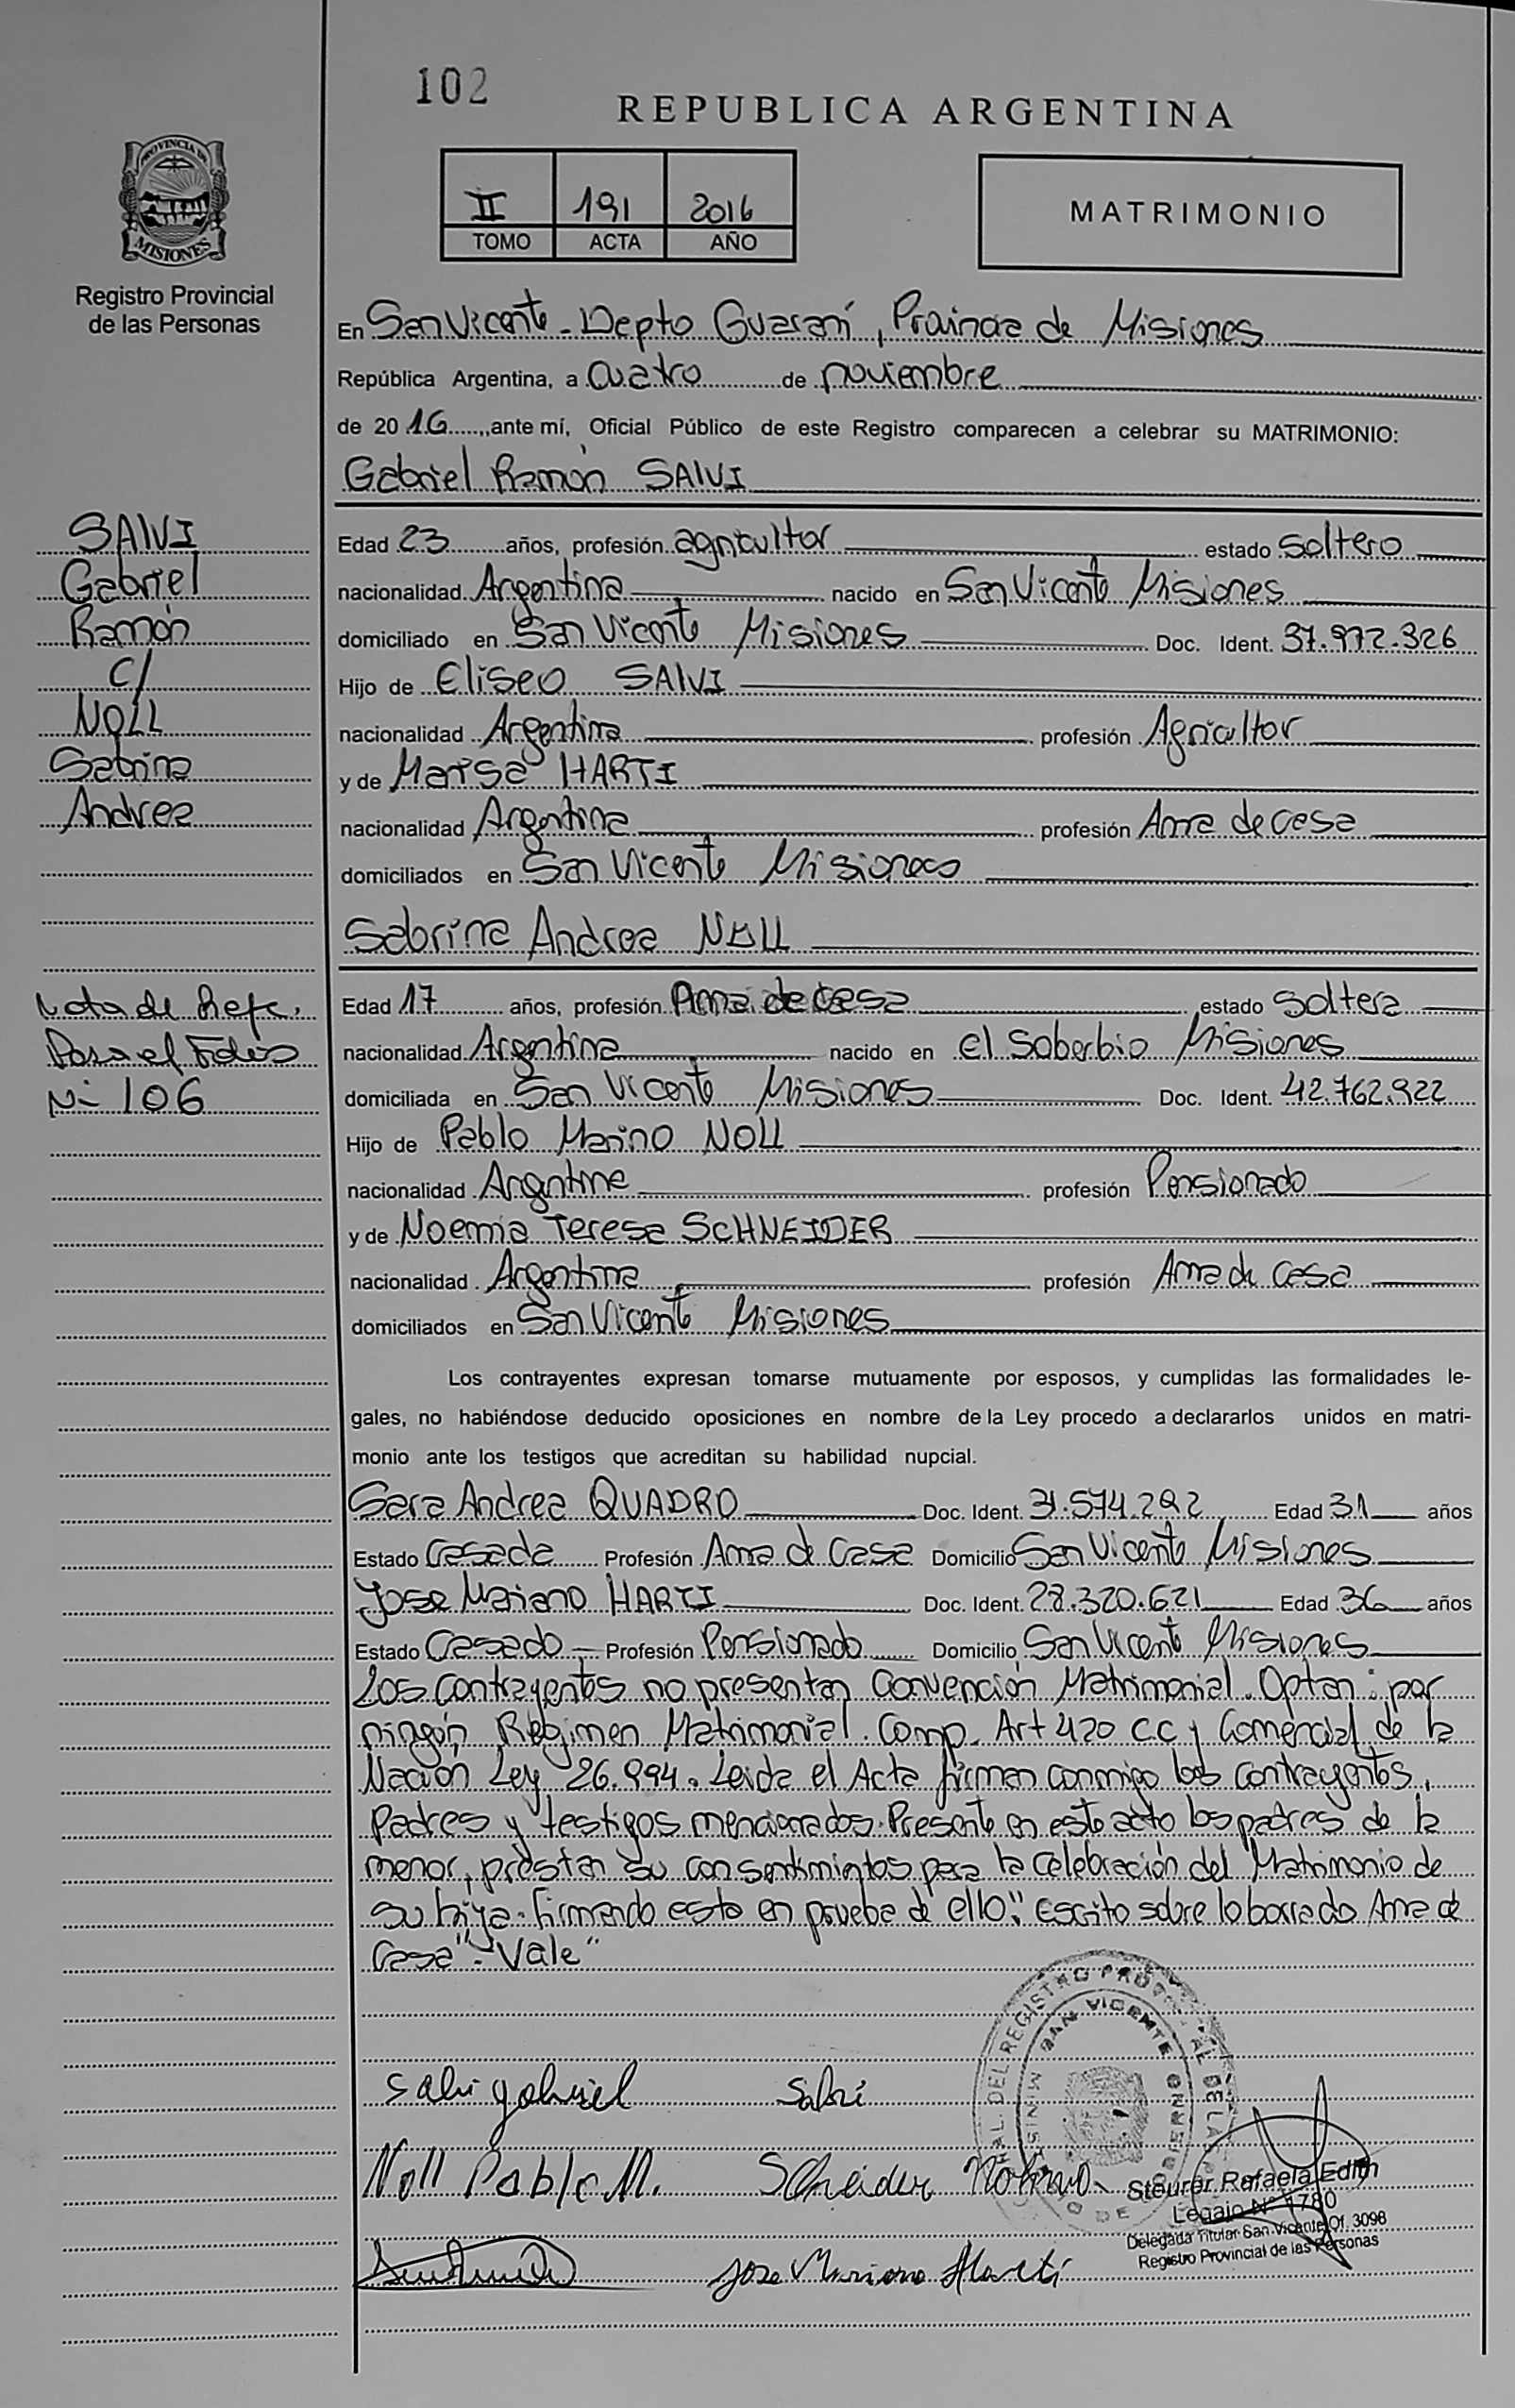 102
REPUBLICA ARGENTINA
PROVINCIA DE
MISIONES
Registro Provincial
de las Personas
II 191 2016
TOMO ACTA AÑO
MATRIMONIO
En San Vicente - Depto Guaraní, Provincia de Misiones
República Argentina, a cuatro de noviembre
de 2016, ante mí, Oficial Público de este Registro comparecen a celebrar su MATRIMONIO:
Gabriel Ramón SALVI
SALVI
Gabriel
Ramón
c/
NOLL
Sabrina
Andrea
Edad 23 años, profesión agricultor estado soltero
nacionalidad Argentina nacido en San Vicente Misiones
domiciliado en San Vicente Misiones Doc. Ident. 37.972.326
Hijo de Eliseo SALVI
nacionalidad Argentina profesión Agricultor
y de Marisa HARTI
nacionalidad Argentina profesión Ama de casa
domiciliados en San Vicente Misiones
Sabrina Andrea NOLL
Nota de Refe.
Para el Folio
Nº 106
Edad 17 años, profesión Ama de casa estado soltera
nacionalidad Argentina nacido en el Soberbio Misiones
domiciliada en San Vicente Misiones Doc. Ident. 42.762.922
Hijo de Pablo Marino NOLL
nacionalidad Argentina profesión Pensionado
y de Noemia Teresa SCHNEIDER
nacionalidad Argentina profesión Ama de casa
domiciliados en San Vicente Misiones
Los contrayentes expresan tomarse mutuamente por esposos, y cumplidas las formalidades le-
gales, no habiéndose deducido oposiciones en nombre de la Ley procedo a declararlos unidos en matri-
monio ante los testigos que acreditan su habilidad nupcial.
Sara Andrea QUADRO Doc. Ident. 31.574.292 Edad 31 años
Estado Casada Profesión Ama de Casa Domicilio San Vicente Misiones
Jose Mariano HARTI Doc. Ident. 28.320.621 Edad 36 años
Estado Casado Profesión Pensionado Domicilio San Vicente Misiones
Los contrayentes no presentan Convención Matrimonial. Optan: por
ningún Régimen Matrimonial. Comp. Art 420 C.C y Comercial de la
Nación Ley 26.994. Leida el Acta firman conmigo los contrayentes,
padres y testigos mencionados. Presente en este acto los padres de la
menor, prestan su consentimintos para la celebración del Matrimonio de
su hija. Firmando esto en prueba de ello." Escrito sobre lo borrado Ama de
Casa". Vale"
Salvi gabriel Sabri
Noll Pablo M. Schneider
Jose Mariano Harti
SAN VICENTE
Steurer Rafaela Edith
Legajo Nº 1780
Delegada Titular San Vicente Of. 3098
Registro Provincial de las Personas